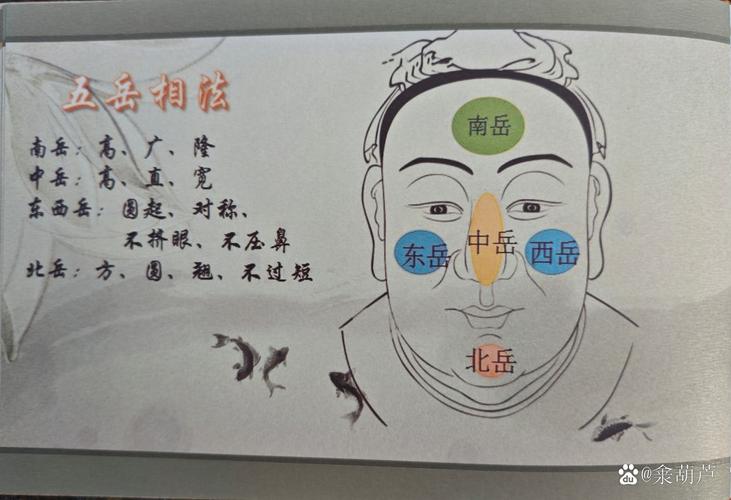 五岳相法
南岳：高、广、隆
中岳：高、直、宽
东西岳：圆起、对称、
不挤眼、不压鼻
北岳：方、圆、翘、不过短
南岳
东岳
中岳
西岳
北岳
Bai du @籴葫芦